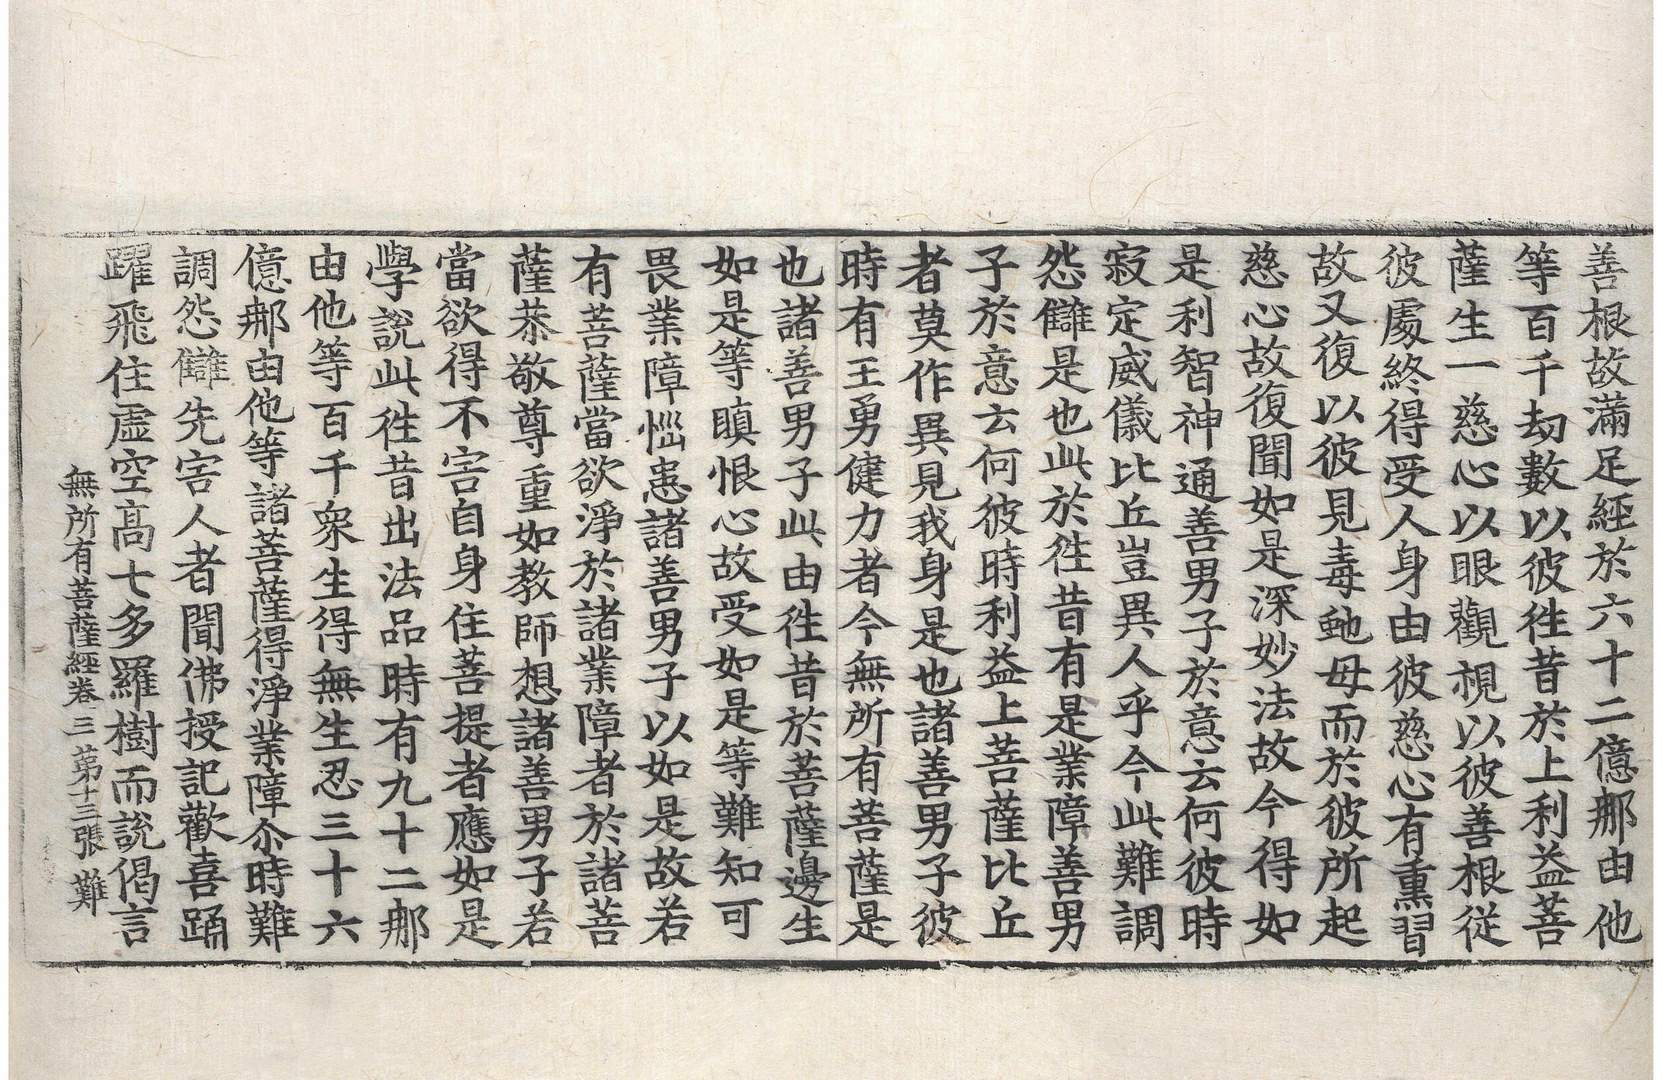 善根故滿足經於六十二億那由他
等百千劫數以彼徃昔於上利益菩
薩生一慈心以眼觀視以彼善根従
彼處終得受人身由彼慈心有熏習
故又復以彼見毒虵母而於彼所起
慈心故復聞如是深妙法故今得如
是利智神通善男子於意云何彼時
寂定威儀比丘豈異人乎今此難調
怨讎是也此於徃昔有是業障善男
子於意云何彼時利益上菩薩比丘
者莫作異見我身是也諸善男子彼
時有王勇健力者今無所有菩薩是
也諸善男子此由徃昔於菩薩邊生
如是等瞋恨心故受如是等難知可
畏業障惱患諸善男子以如是故若
有菩薩當欲淨於諸業障者於諸菩
薩恭敬尊重如教師想諸善男子若
當欲得不害自身住菩提者應如是
學說此徃昔出法品時有九十二那
由他等百千衆生得無生忍三十六
億那由他等諸菩薩得淨業障尒時難
調怨讎先害人者聞佛授記歡喜踊
躍飛住虛空高七多羅樹而說偈言
無所有菩薩經卷三 第十三張 難